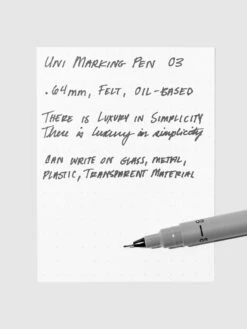 UNI MARKING PEN 03
.64mm, FELT, OIL-BASED
THERE IS LUXURY IN SIMPLICITY
There is luxury in simplicity
CAN WRITE ON GLASS, METAL,
PLASTIC, TRANSPARENT MATERIAL